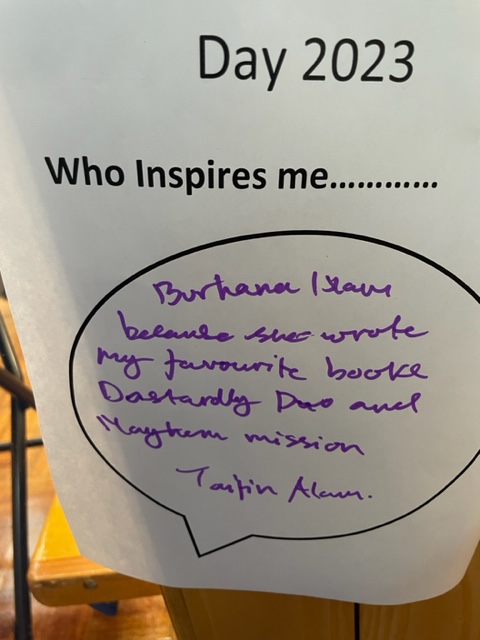 Day 2023
Who Inspires me............
Burhana Islam
because she wrote
my favourite books
Dastardly Duo and
Mayhem mission
Alam.